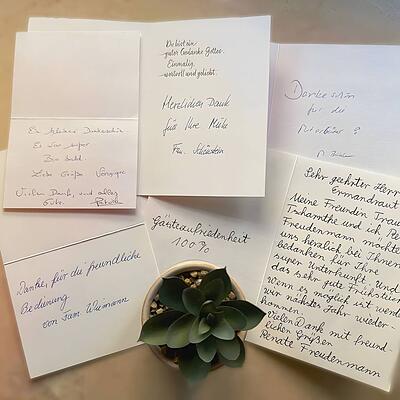 Ein kleines Dankeschön
Es war super
Bis bald.
Liebe Grüße
Vielen Dank, und alles
Gute.
Du bist ein
guter Gedanke Gottes.
Einmalig,
wertvoll und geliebt.
Herzlichen Dank
für Ihre Mühe
Fam.
Dankeschön
für die
Sehr geehrter Herr
Ermandraut
Meine Freundin Trau
Tschamthe und ich Re
Freudenmann möchte
uns herzlich bei Ihnen
bedanken für Ihre
super Unterkunft und
das sehr gute Frühstück
Wenn es möglich ist werde
wir nächster Jahr wieder-
kommen.
Vielen Dank mit freund-
lichen Grüßen
Renate Freudenmann
Gästezufriedenheit
100%
Danke für die freundliche
Bedinung
von fam.